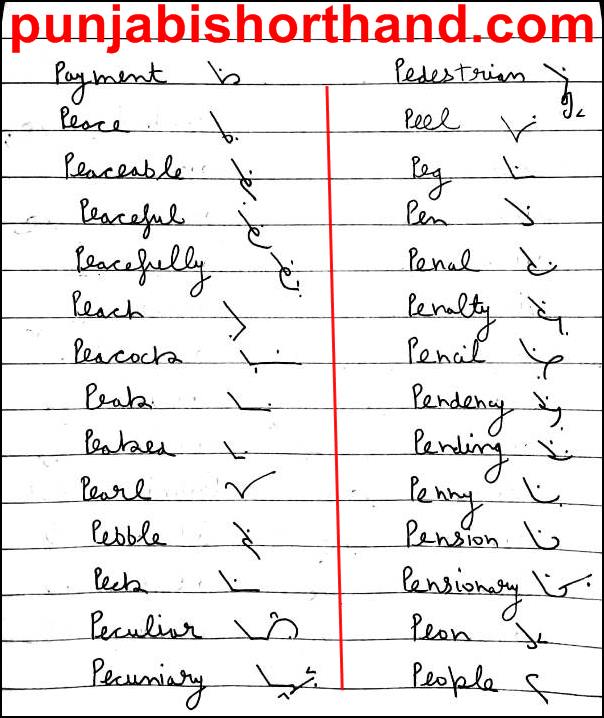 punjabishorthand.com
Payment
Peace
Peaceable
Peaceful
Peacefully
Peach
Peacock
Peak
Peaked
Pearl
Pebble
Peck
Peculiar
Pecuniary
Pedestrian
Peel
Peg
Pen
Penal
Penalty
Pencil
Pendency
Pending
Penny
Pension
Pensionary
Peon
People